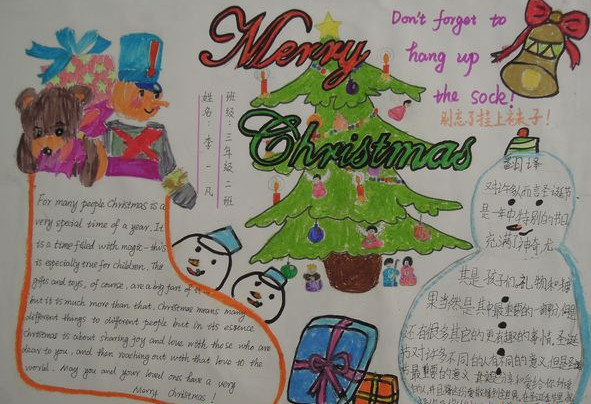 Merry
Christmas
Don't forget to
hang up
the sock!
别忘了挂上袜子!
班级:三年级二班
姓名:李一凡
For many people Christmas is a
very special time of a year. It
is a time filled with magic - this
is especially true for children. The
gifts and toys, of course, are a big part of it
but it is much more than that. Christmas means many
different things to different people but in its essence
Christmas is about sharing joy and love with those who are
dear to you, and then reaching out with that love to the
world. May you and your loved ones have a very
Merry Christmas!
翻译
对许多人而言圣诞节
是一年中特别的节日
充满了神奇
其是孩子们礼物和
果当然是其中最重要的一部分但
还有很多其它的更有趣的事情圣诞
节对许多不同的人有不同的意义但是圣
节最重要的意义